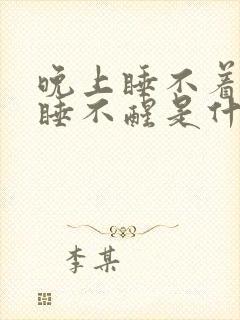 晚上睡不着
睡不醒是什
李某